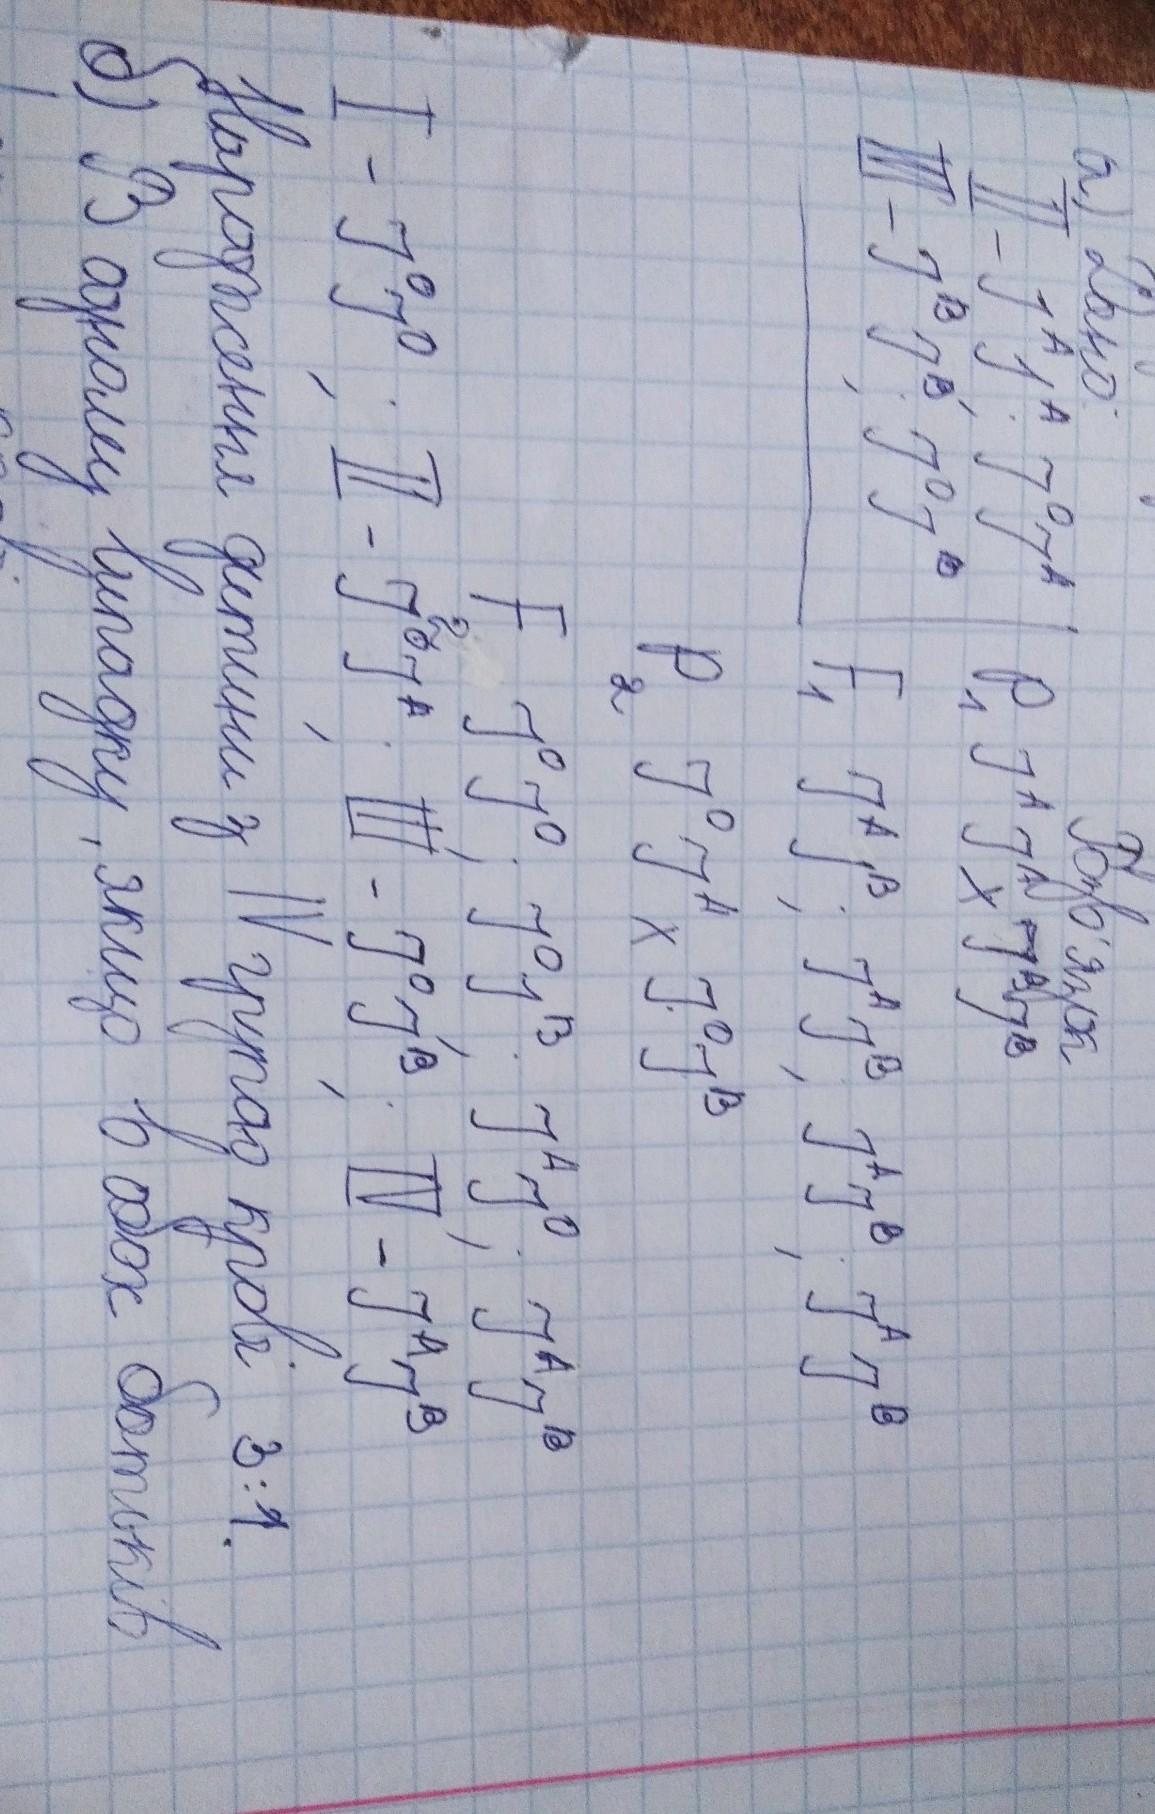 а) Дано:
II - JᴬJᴬ; J⁰Jᴬ
III - JᴮJᴮ; J⁰Jᴮ
Розв'язок
P₁ JᴬJᴬ x JᴮJᴮ
F₁ JᴬJᴮ; JᴬJᴮ; JᴬJᴮ; JᴬJᴮ
P₂ J⁰Jᴬ x J⁰Jᴮ
F₂ J⁰J⁰; J⁰Jᴮ; JᴬJ⁰; JᴬJᴮ
I - J⁰J⁰; II - J⁰Jᴬ; III - J⁰Jᴮ; IV - JᴬJᴮ
Народження дитини з IV групою крові 3:1.
б) В одному випадку, якщо в обох батьків